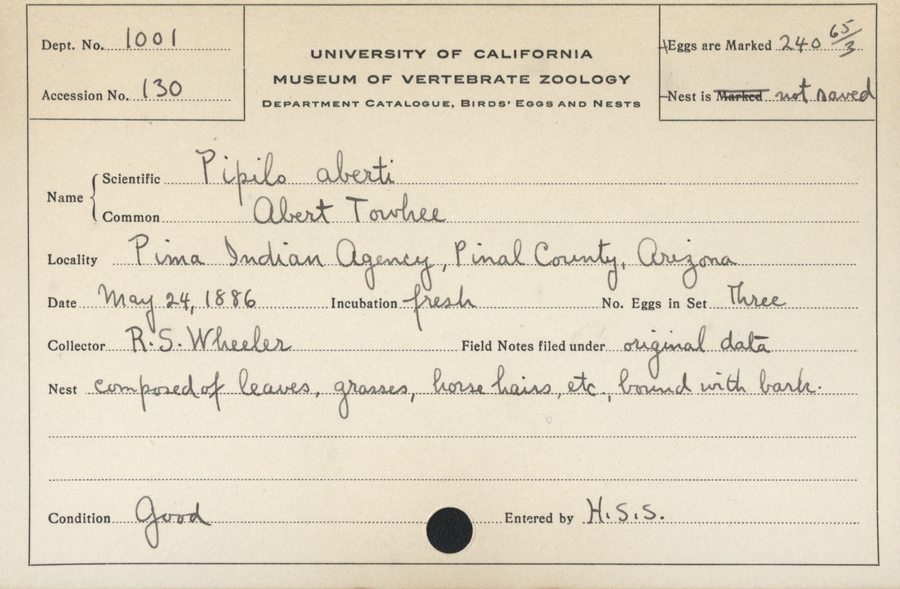 Dept. No. 1001
Accession No. 130
UNIVERSITY OF CALIFORNIA
MUSEUM OF VERTEBRATE ZOOLOGY
DEPARTMENT CATALOGUE, BIRDS' EGGS AND NESTS
Eggs are Marked 240 65/3
Nest is Marked not saved
Name
Scientific Pipilo aberti
Common Abert Towhee
Locality Pima Indian Agency, Pinal County, Arizona
Date May 24, 1886 Incubation fresh No. Eggs in Set Three
Collector R. S. Wheeler Field Notes filed under original data
Nest composed of leaves, grasses, horse hairs, etc., bound with bark.
Condition Good Entered by H. S. S.